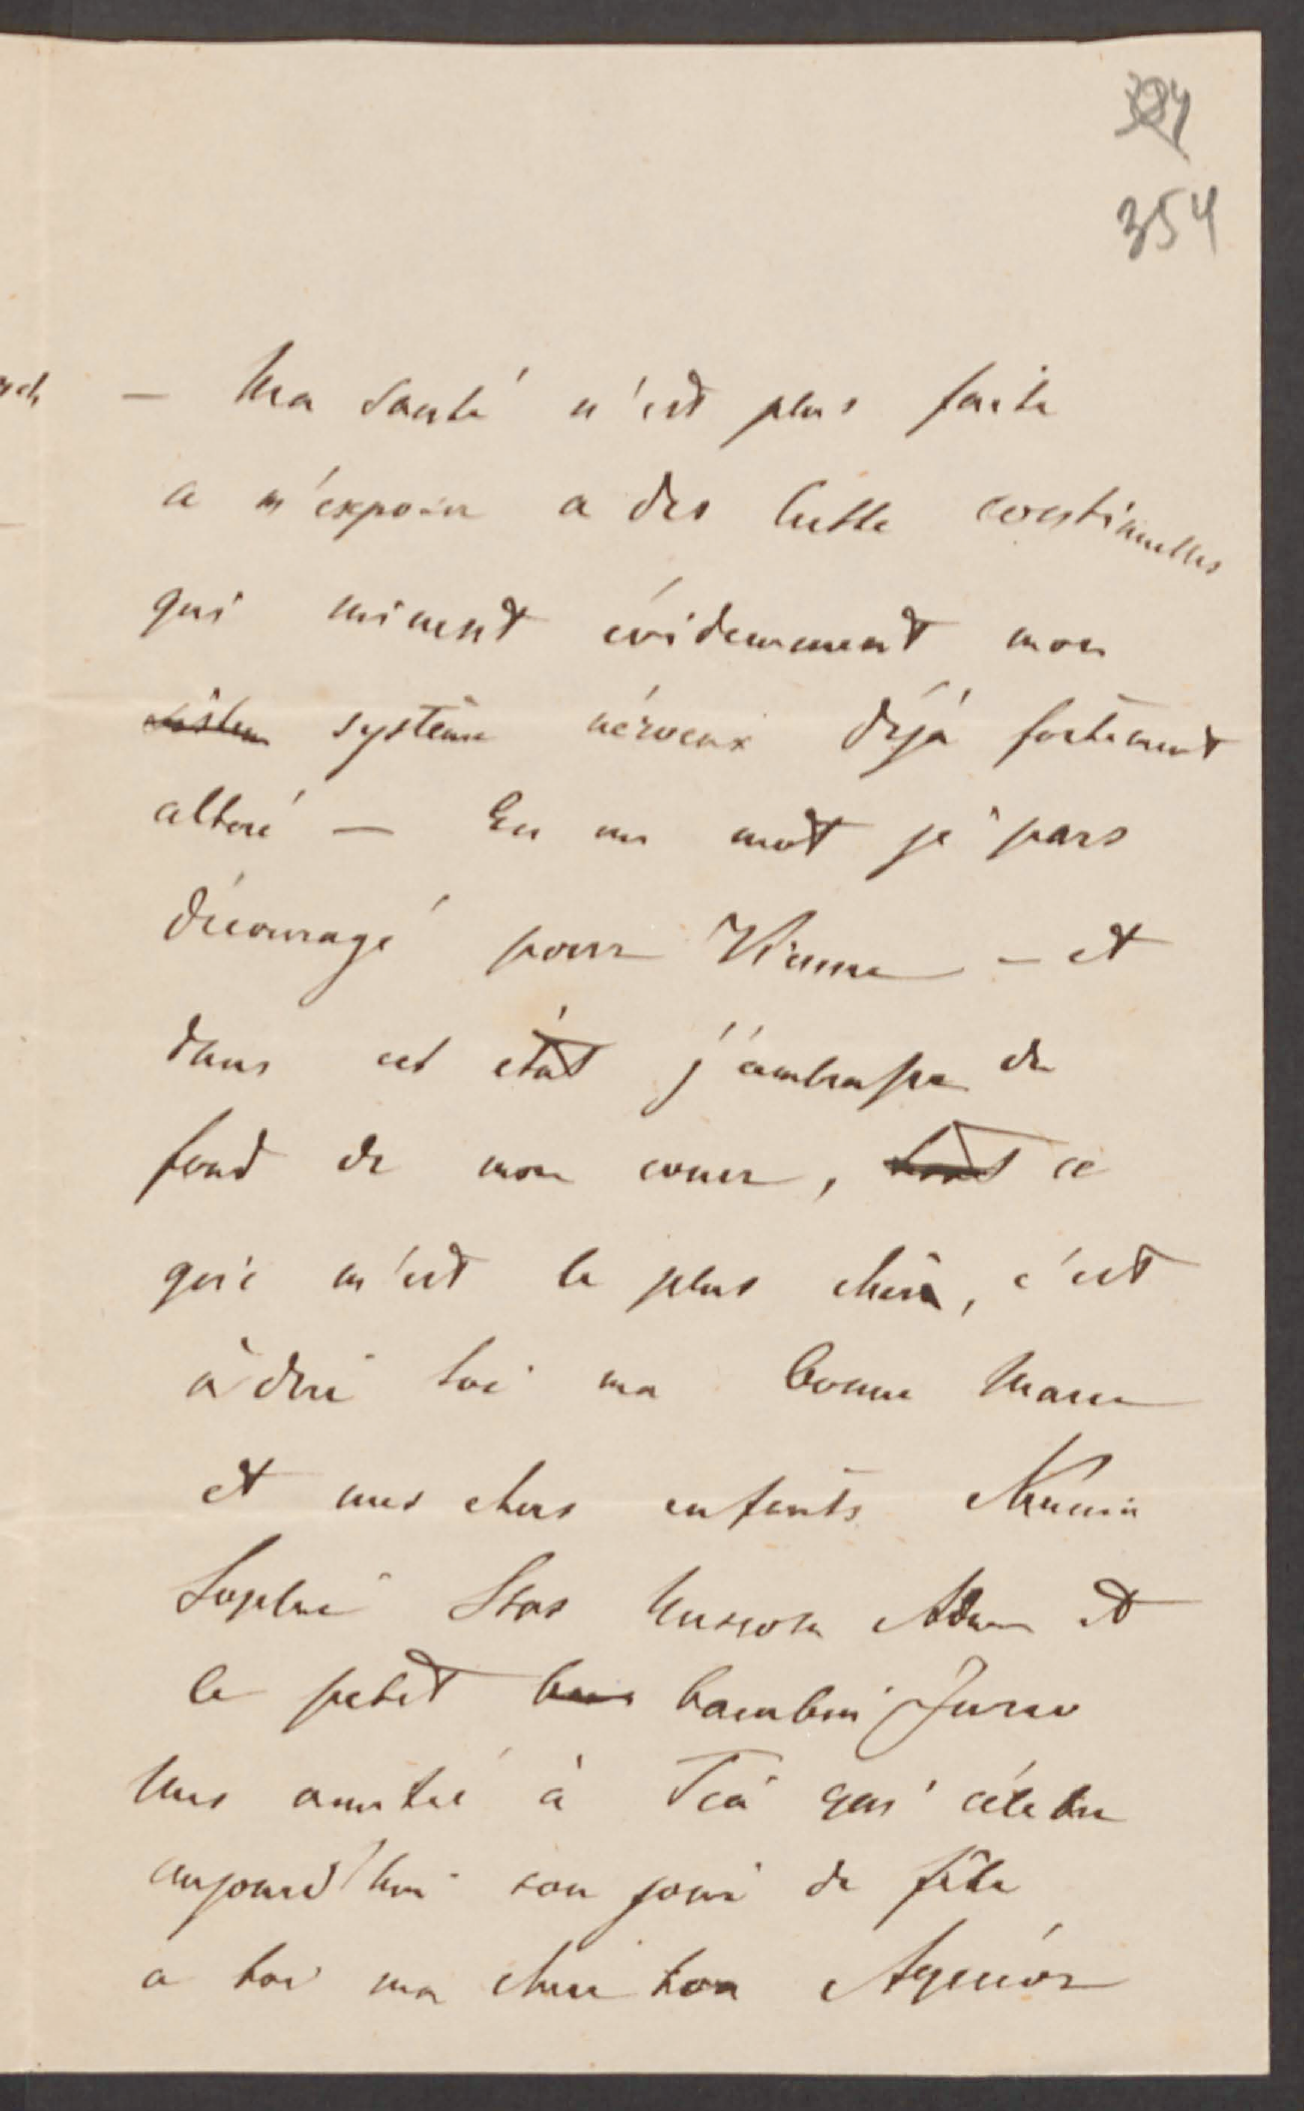 354
— Ma santé n'est plus faite
a m'exposer a des lutte continuelles
qui minent évidemment mon
système nérveux déjà fortement
alteré — En un mot je pars
découragé pour Vienne — et
dans cet état j'émbrasse du
fond de mon coeur, ce
qui m'est le plus chèr, c'est
à dire toi ma bonne Marie
et mes chers enfants
Sophie Stas Adam et
le petit bambin
Mes amitié à qui célebre
aujourd'hui son jour de fête
a toi ma chere ton Agenór